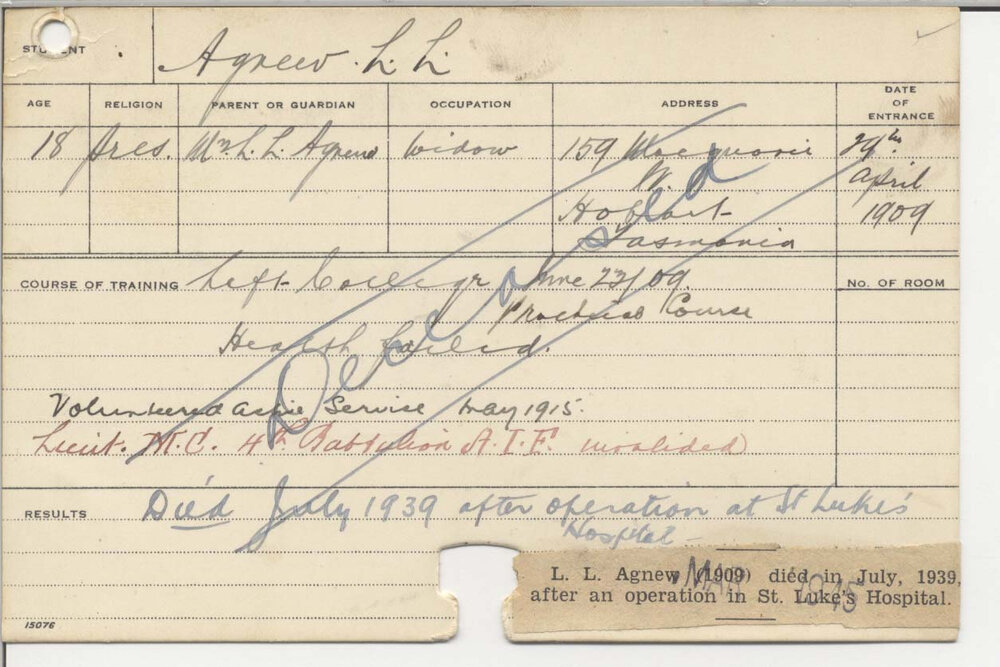 STUDENT Agnew. L. L.
AGE RELIGION PARENT OR GUARDIAN OCCUPATION ADDRESS DATE OF ENTRANCE
18 Pres. Mrs. L. L. Agnew Widow 159 Macquarie 29th
W. April
Hobart 1909
Tasmania
Deceased
COURSE OF TRAINING Left College June 23/09. No. OF ROOM
Practical Course
Health failed.
Volunteered active Service May 1915.
Lieut. M.C. 4th Battalion A.I.F. invalided
RESULTS Died July 1939 after operation at St Luke's
Hospital -
L. L. Agnew (1909) died in July, 1939,
after an operation in St. Luke's Hospital.
MAR 1945
15076